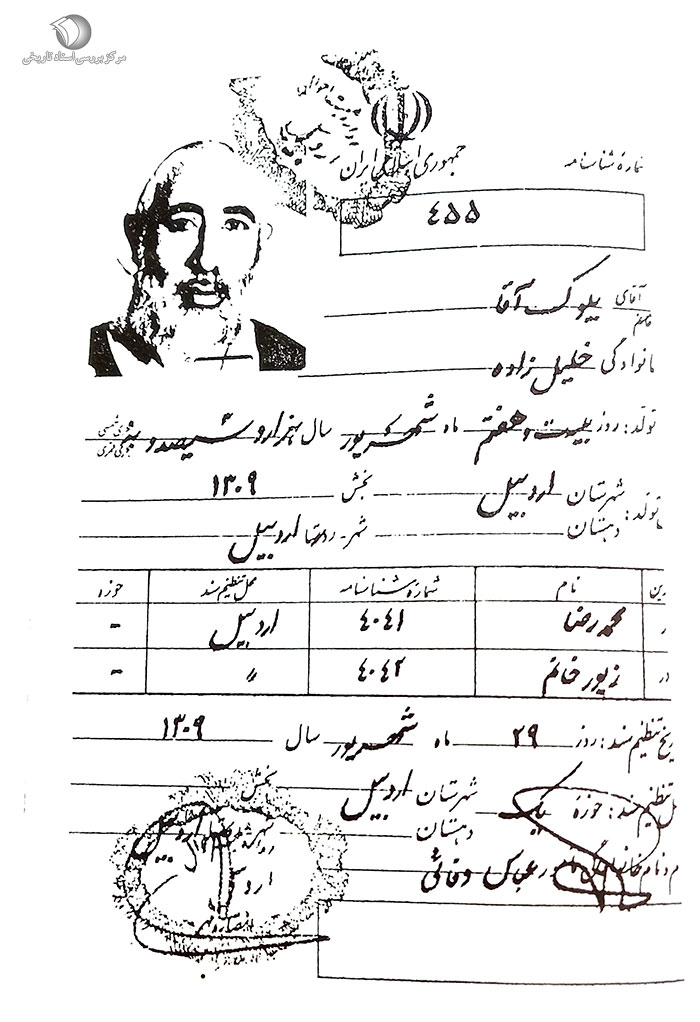 مرکز بررسی اسناد تاریخی
جمهوری اسلامی ایران
شماره شناسنامه
۴۵۵
آقای بیوک آقا
خانم
خانوادگی خلیل زاده
تولد: روز بیست و هفتم ماه شهریور سال یکهزار و سیصد و نه
شهرستان اردبیل بخش ۱۳۰۹
تولد: دهستان شهر اردبیل
نام شماره شناسنامه محل تنظیم سند حوزه
محمدرضا ۴۰۴۱ اردبیل -
زیور خانم ۴۰۴۲ 〃 -
تنظیم سند: روز ۲۹ ماه شهریور سال ۱۳۰۹
تنظیم سند: حوزه یک شهرستان اردبیل بخش
دهستان
نام خانوادگی عباس وفائی